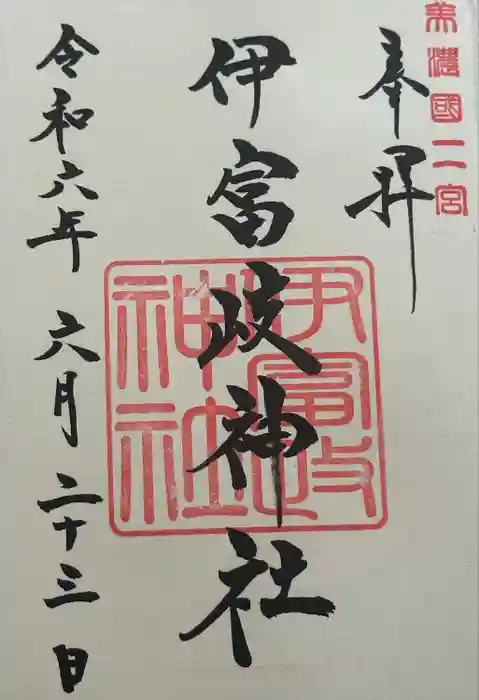 美濃國二宮
奉拝
伊富岐神社
伊富岐
神社
令和六年六月二十三日